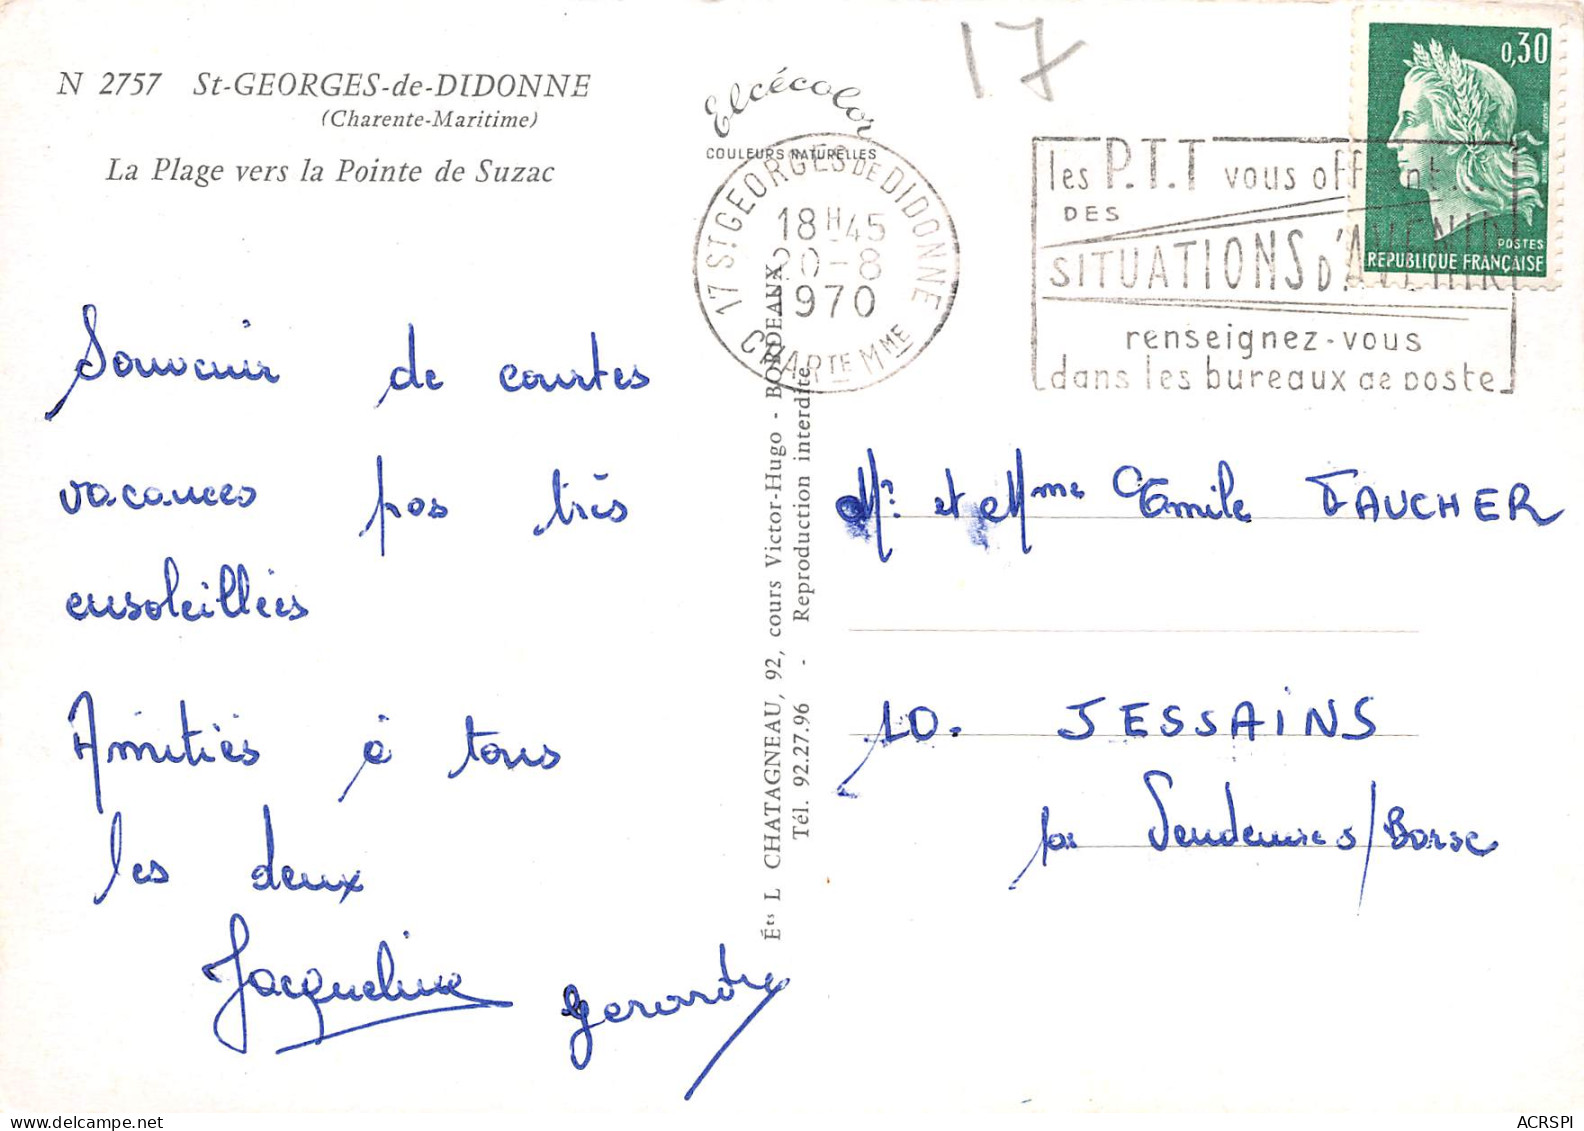 N 2757 St-GEORGES-de-DIDONNE
(Charente-Maritime)
La Plage vers la Pointe de Suzac
Souvenir de courtes
vacances pas très
ensoleillées
Amitiés à tous
les deux
Jacqueline
Gérard
Elcécolor
COULEURS NATURELLES
17 ST GEORGES DE DIDONNE
18H45
20-8
1970
CHARTE MME
Éts L CHATAGNEAU, 92, cours Victor-Hugo - BORDEAUX
Tél. 92.27.96 - Reproduction interdite
17
les P.T.T vous offrent...
DES
SITUATIONS D'AVENIR
renseignez-vous
dans les bureaux de poste
0,30
POSTES
REPUBLIQUE FRANÇAISE
Mr. et Mme Emile FAUCHER
10. JESSAINS
par Vendeuvre s/Barse
ACRSPI